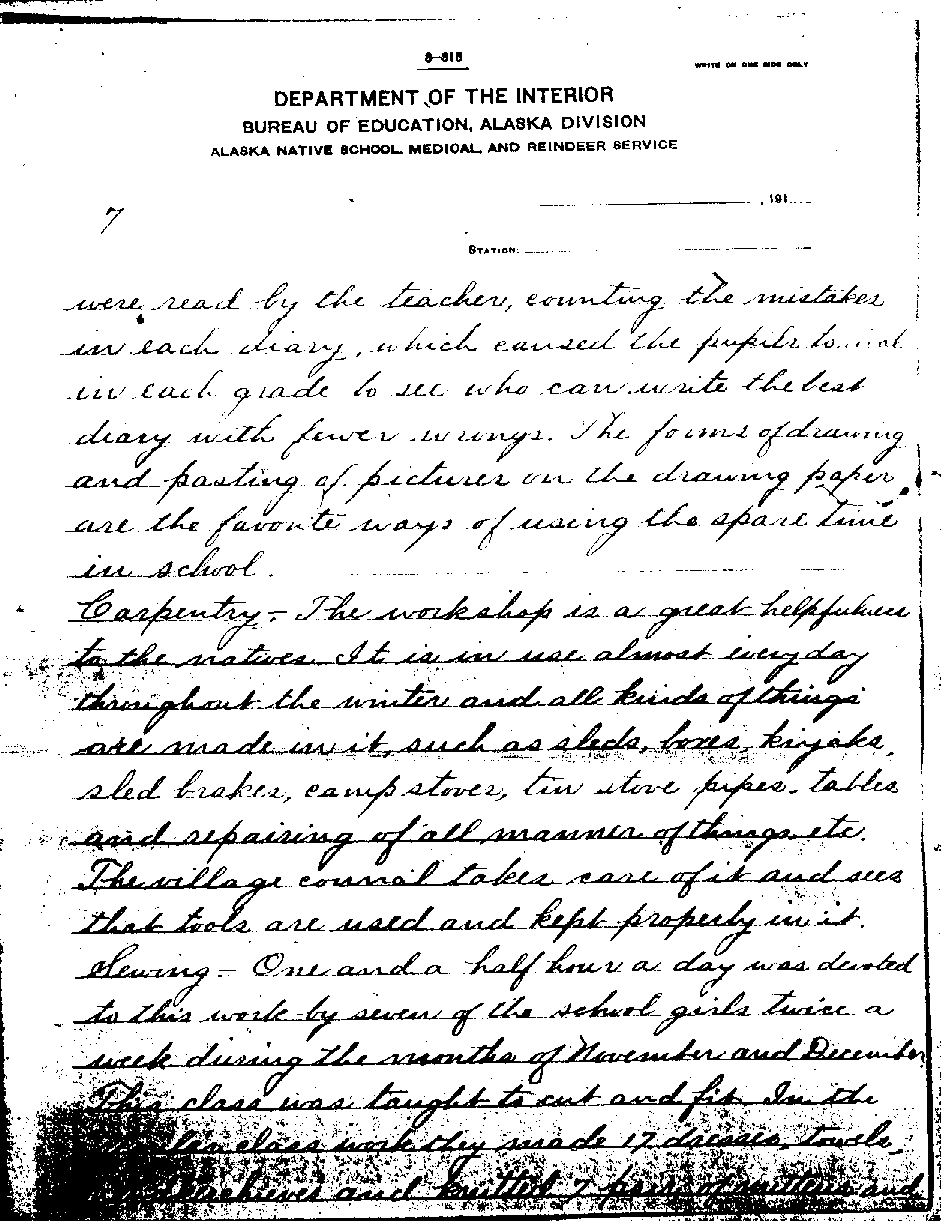 8-315
WRITE ON ONE SIDE ONLY
DEPARTMENT OF THE INTERIOR
BUREAU OF EDUCATION, ALASKA DIVISION
ALASKA NATIVE SCHOOL, MEDICAL, AND REINDEER SERVICE
7
, 191
STATION:
were read by the teacher, counting the mistakes
in each diary, which caused the pupils to
in each grade to see who can write the best
diary with fewer wrongs. The forms of drawing
and pasting of pictures on the drawing paper
are the favorite ways of using the spare time
in school.
Carpentry - The workshop is a great helpfulness
to the natives. It is in use almost every day
throughout the winter and all kinds of things
are made in it, such as sleds, boxes, kiyaks,
sled brakes, camp stoves, tin stove pipes, tables
and repairing of all manner of things etc.
The village council takes care of it and sees
that tools are used and kept properly in it.
Sewing - One and a half hour a day was devoted
to this work by seven of the school girls twice a
week during the months of November and December
This class was taught to cut and fit. In the
class work they made 17 dresses, towels,
and knitted 7 pairs of mittens and